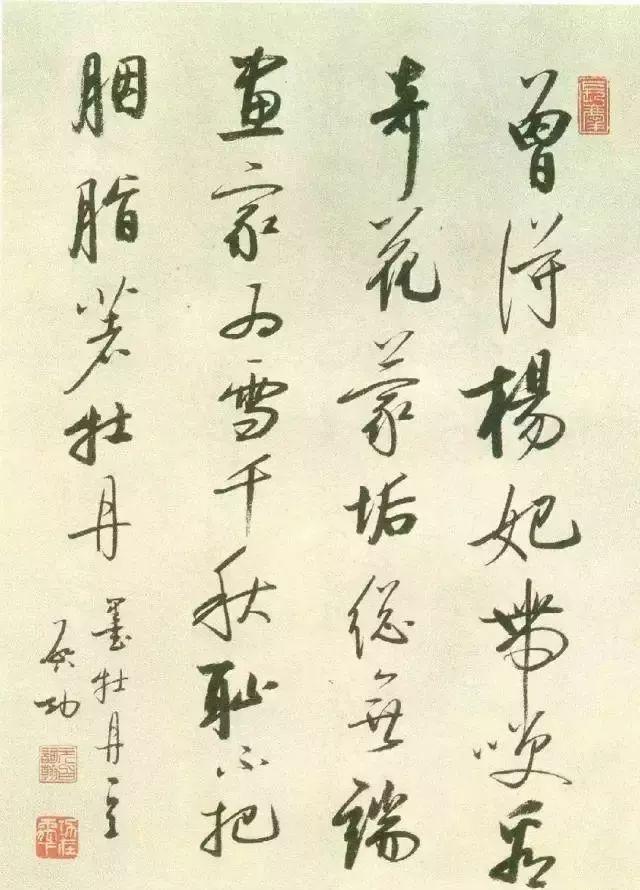 曾得楊妃帶咲看
奇花蒙垢總無端
畫家為雪千秋恥不把
胭脂著牡丹
墨牡丹
啟功